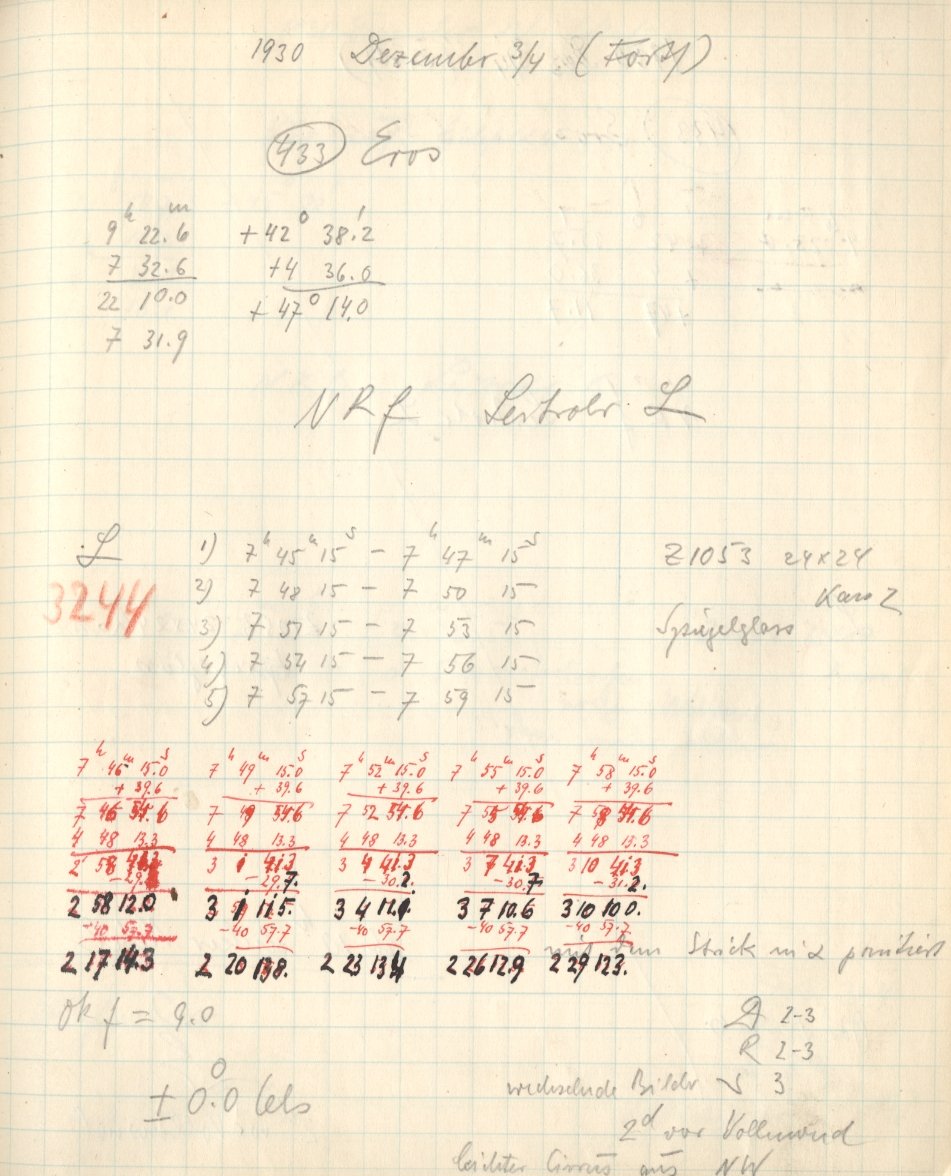 1930 Dezember 3/4 (Forts)
433 Eros
9 h 22.6 m +42° 38.'2
7 32.6 +4 36.0
22 10.0 +47° 14.0
7 31.9
NRf Leitrohr L
L 1) 7 h 45 m 15 s – 7 h 47 m 15 s Z1053 24x24
3244 2) 7 48 15 – 7 50 15
3) 7 51 15 – 7 53 15 Spiegelglass
4) 7 54 15 – 7 56 15
5) 7 57 15 – 7 59 15
7 h 46 m 15.0 s 7 h 49 m 15.0 s 7 h 52 m 15.0 s 7 h 55 m 15.0 s 7 h 58 m 15.0 s
+ 39.6 + 39.6 + 39.6 + 39.6 + 39.6
7 46 54.6 7 49 54.6 7 52 54.6 7 55 54.6 7 58 54.6
4 48 13.3 4 48 13.3 4 48 13.3 4 48 13.3 4 48 13.3
2 58 41.3 3 1 41.3 3 4 41.3 3 7 41.3 3 10 41.3
–29.7. –30.2. –30.7 –31.2.
2 58 12.0 3 1 11.5. 3 4 12.1 3 7 10.6 3 10 10 0.
–40 57.7 –40 57.7 –40 57.7 –40 57.7 –40 57.7
2 17 14.3 2 20 13.8. 2 23 13.4 2 26 12.9 2 29 12.3.
mit dem Strich in α pointiert
Ok f = 9.0
A 2-3
R 2-3
±0.°0 Cels
wechselnde Bilder 3
2 d vor Vollmond
leichter Cirrus aus NW